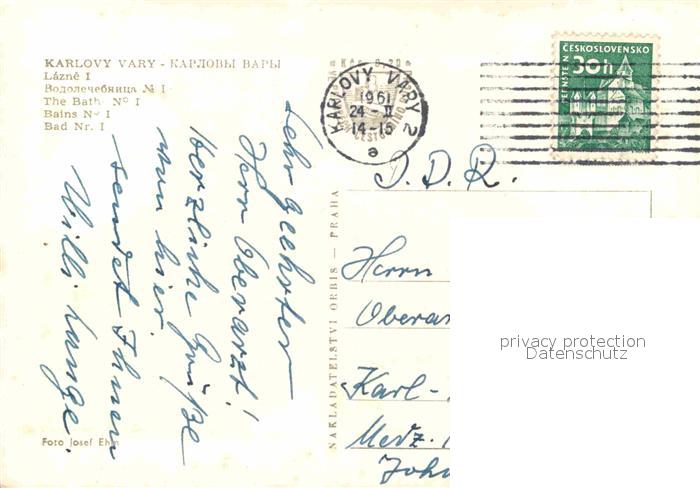 KARLOVY VARY - КАРЛОВЫ ВАРЫ
Lázně I
Водолечебница № I
The Bath Nº I
Bains Nº I
Bad Nr. I
KARLOVY VARY 2
1961
24 - II
14-15
a
ČESKOSLOVENSKO
30h
D. D. R.
Sehr geehrter
Herr Oberarzt!
Herzliche Grüße
von hier
sendet Ihnen
Willi Lange.
NAKLADATELSTVÍ ORBIS — PRAHA
Herrn
Obera
Karl-
Medz.
Joh
privacy protection
Datenschutz
Foto Josef Ehm